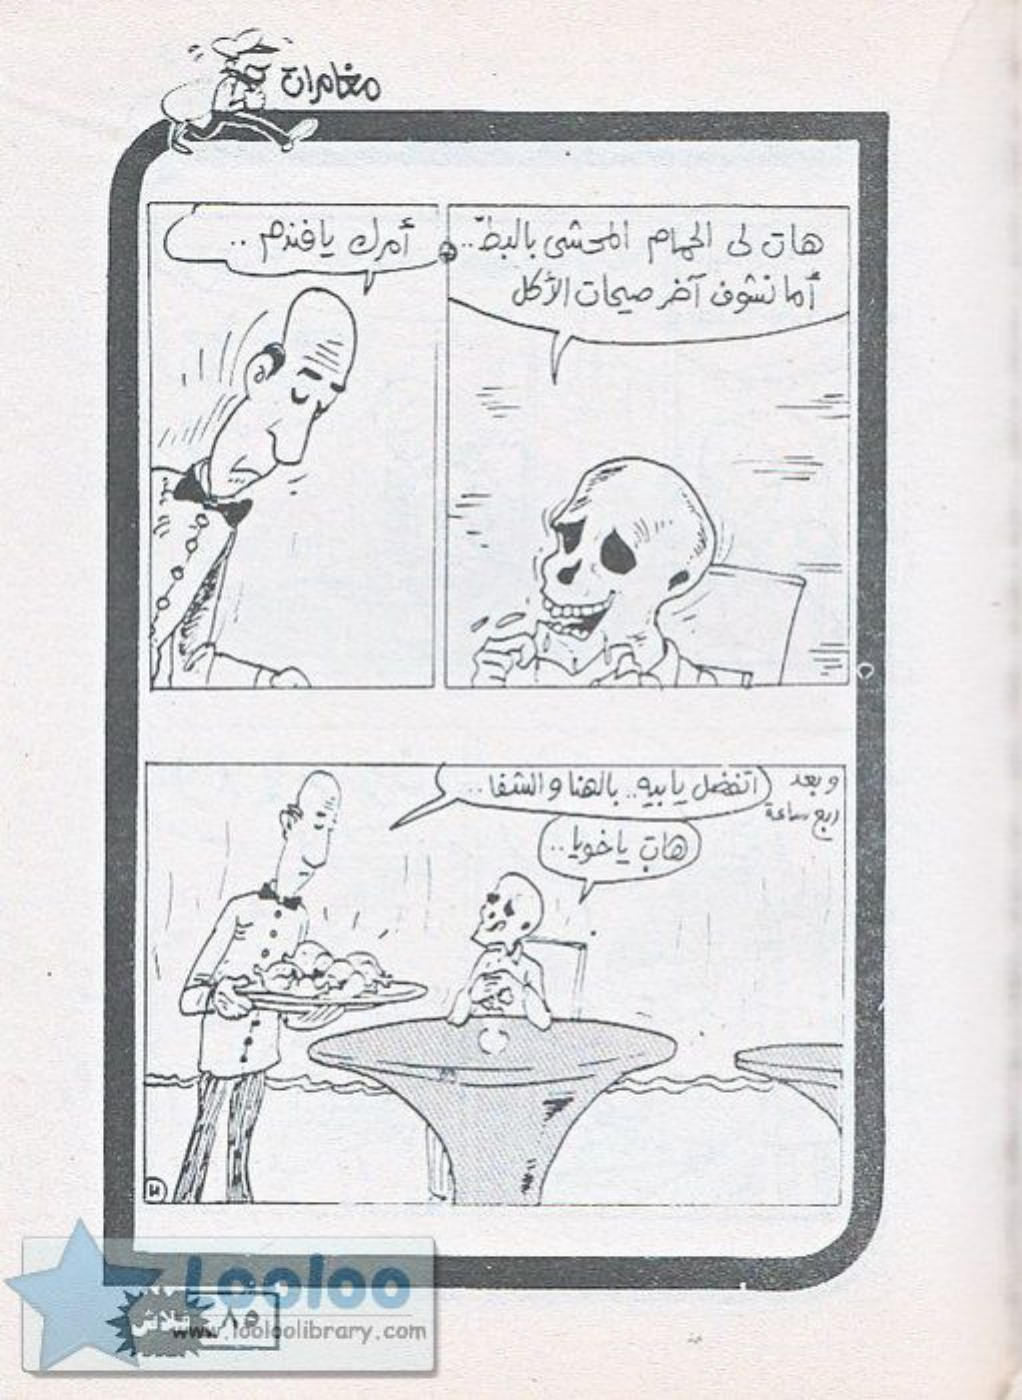 مغامرات
هات لى الحمام المحشى بالبطّ..
أما نشوف آخر صيحات الأكل
أمرك يا فندم ..
وبعد
ربع ساعة
اتفضل يا بيه.. بالهنا والشفا..
هات يا خويا..
فلاش
٨٥
Looloo
www.looloolibrary.com